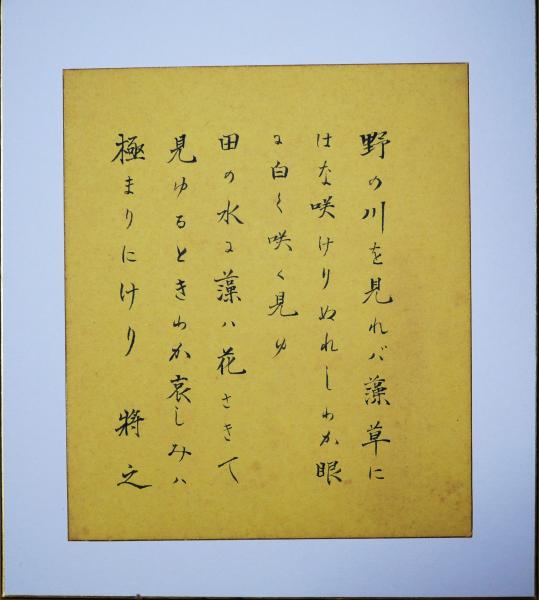 野の川を見れバ藻草に
はな咲けりぬれしわか眼
に白く咲く見ゆ
田の水に藻ハ花さきて
見ゆるときわか哀しみハ
極まりにけり 將之